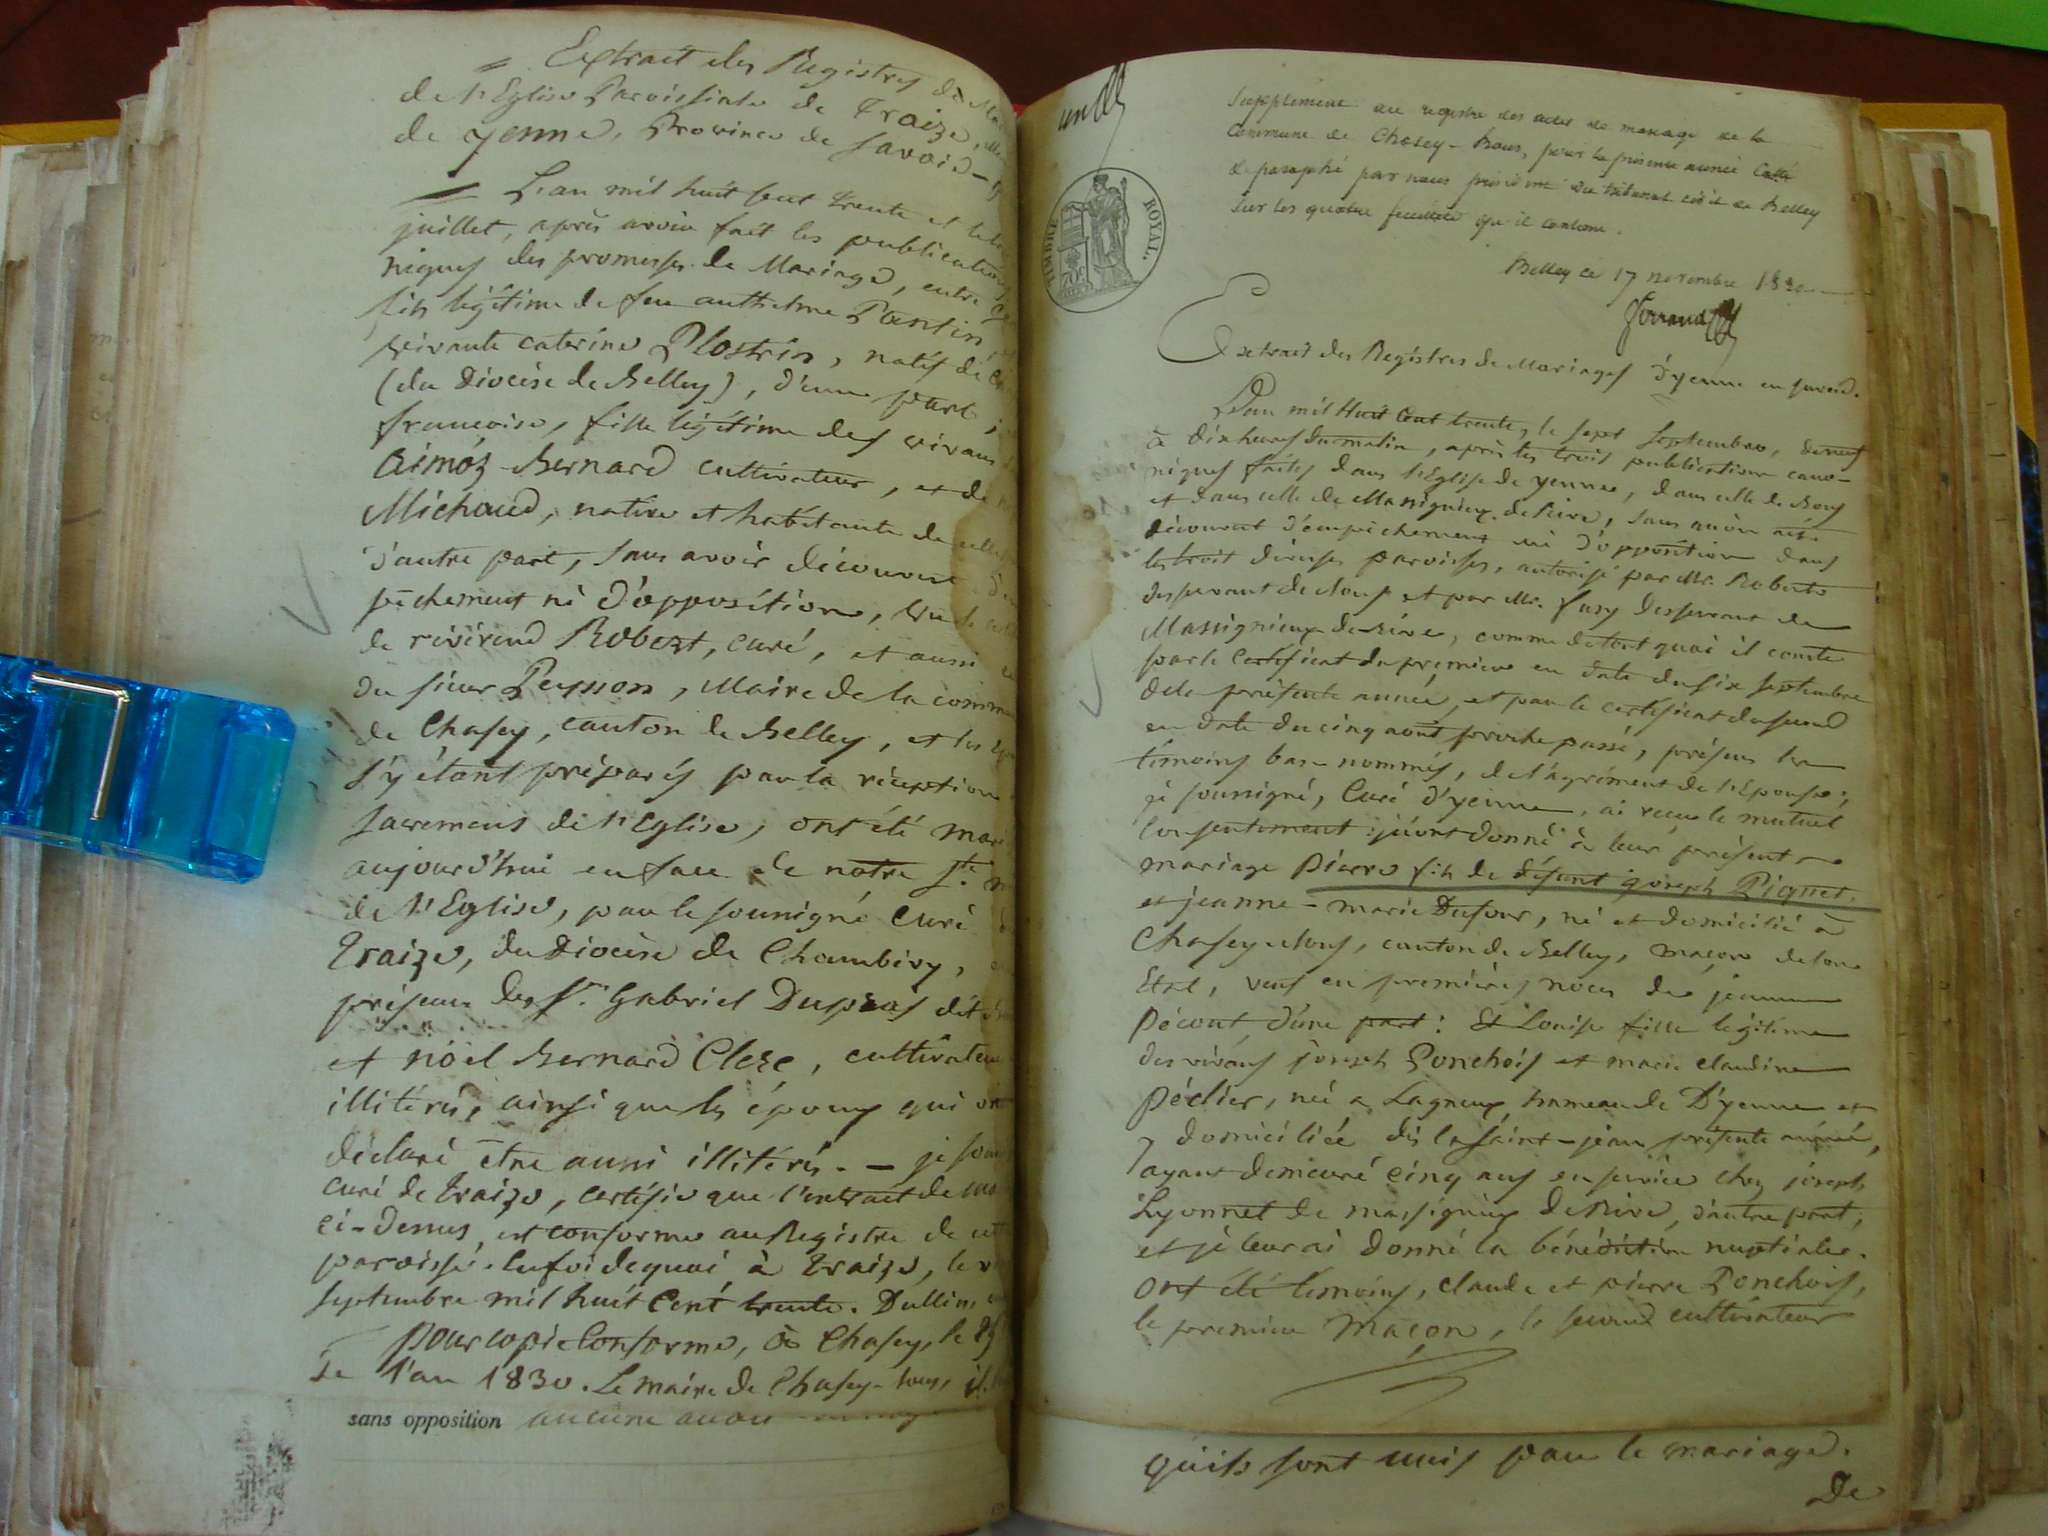 Extrait des Registres de
de l'Eglise Paroissiale de Traize,
de yenne, Province de Savoie –
L'an mil huit cent trente et le
juillet, après avoir fait les publications
niques des promesses de Mariage, entre
fils légitime de feu anthelme Pantin
vivante caterine Plostrin, natif de
(du Diocèse de Belley), d'une part,
francoise, fille légitime des vivans
Aimoz-Bernard cultivateur, et de
Michaud, native et habitante de cette
d'autre part, sans avoir découvert d'em
pêchement ni d'opposition, vu le
de révérend Robert, curé, et aussi
du sieur Peysson, Maire de la comm
de Chasey, canton de Belley, et les
s'y étant préparés par la réception
sacremens de l'Eglise, ont été mar
aujourd'hui en face de notre Ste. m
de l'Eglise, par le soussigné Curé
Traize, du Diocèse de Chambéry,
présence des Sr. Gabriel Dupras dit
et nöel Bernard Clerc, cultivateu
illitérés, ainsi que les époux qui on
déclaré être aussi illitérés. – je sou
curé de Traize, certifie que l'extrait de
ci-dessus, est conforme au Registre de cett
paroisse. En foi de quoi, à Traize, le
septembre mil huit cent trente. Dullin,
Pour copie conforme, à Chasey, le 29
De l'an 1830. Le maire de Chasey-bons,
sans opposition aucune
un
TIMBRE ROYAL.
70c
Supplément au registre des actes de mariage de la
Commune de Chasey-Bons, pour la présente année Cotté
& paraphé par nous président du tribunal civil de Belley
sur les quatre feuillets qu'il contient.
Belley ce 17 novembre 1830
Ferrand
Extrait des Registres de Mariages d'yenne en savoie.
L'an mil Huit Cent trente, le sept septembre, de neuf
à dix heures du matin, après les trois publications cano-
niques faites dans l'Eglise de yenne, dans celle de Bons
et dans celle de Massignieux de Rive, sans avoir été
découvert d'empêchement ni d'opposition dans
les trois diverses paroisses, autorisé par Mr. Robert
desservant de Bons et par Mr. Jusy desservant de
Massignieux de Rive, comme de tout quoi il conste
par le certificat du premier en date du six septembre
de la présente année, et par le certificat du second
en date du cinq août proche passé, présens les
témoins bas-nommés, de l'agrément de l'Epouse;
je soussigné, Curé d'yenne, ai reçu le mutuel
consentement qu'ont donné à leur présent
mariage Pierre fils de défunt joseph Piquet
et jeanne-marie Dufour, né et domicilié à
Chasey-Bons, canton de Belley, maçon de son
Etat, veuf en premières noces de jeanne
Pécout, d'une part: Et Louise fille légitime
des vivans joseph Ponchois et marie claudine
Péclier, née à Lagneux, hameau de D'yenne et
y domiciliée dès la saint-jean présente année,
ayant demeuré cinq ans en service chez joseph
Lyonnet de massignieux de Rive, d'autre part;
et je leur ai donné la bénédiction nuptiale.
Ont été témoins, claude et pierre Ponchois,
le premier Maçon, le second cultivateur
quils sont unis par le mariage.
De